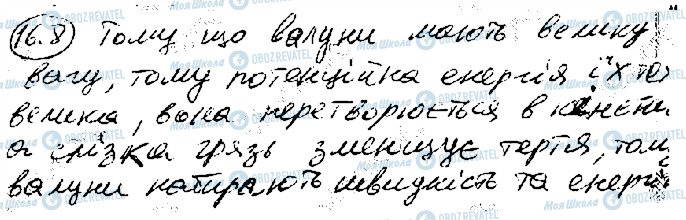 16.8 Тому що валуни мають велику
вагу, тому потенційна енергія їх теж
велика, вона перетворюється в кінети
а слізка грязь зменшує тертя, том
валуни набирають швидкість та енергі